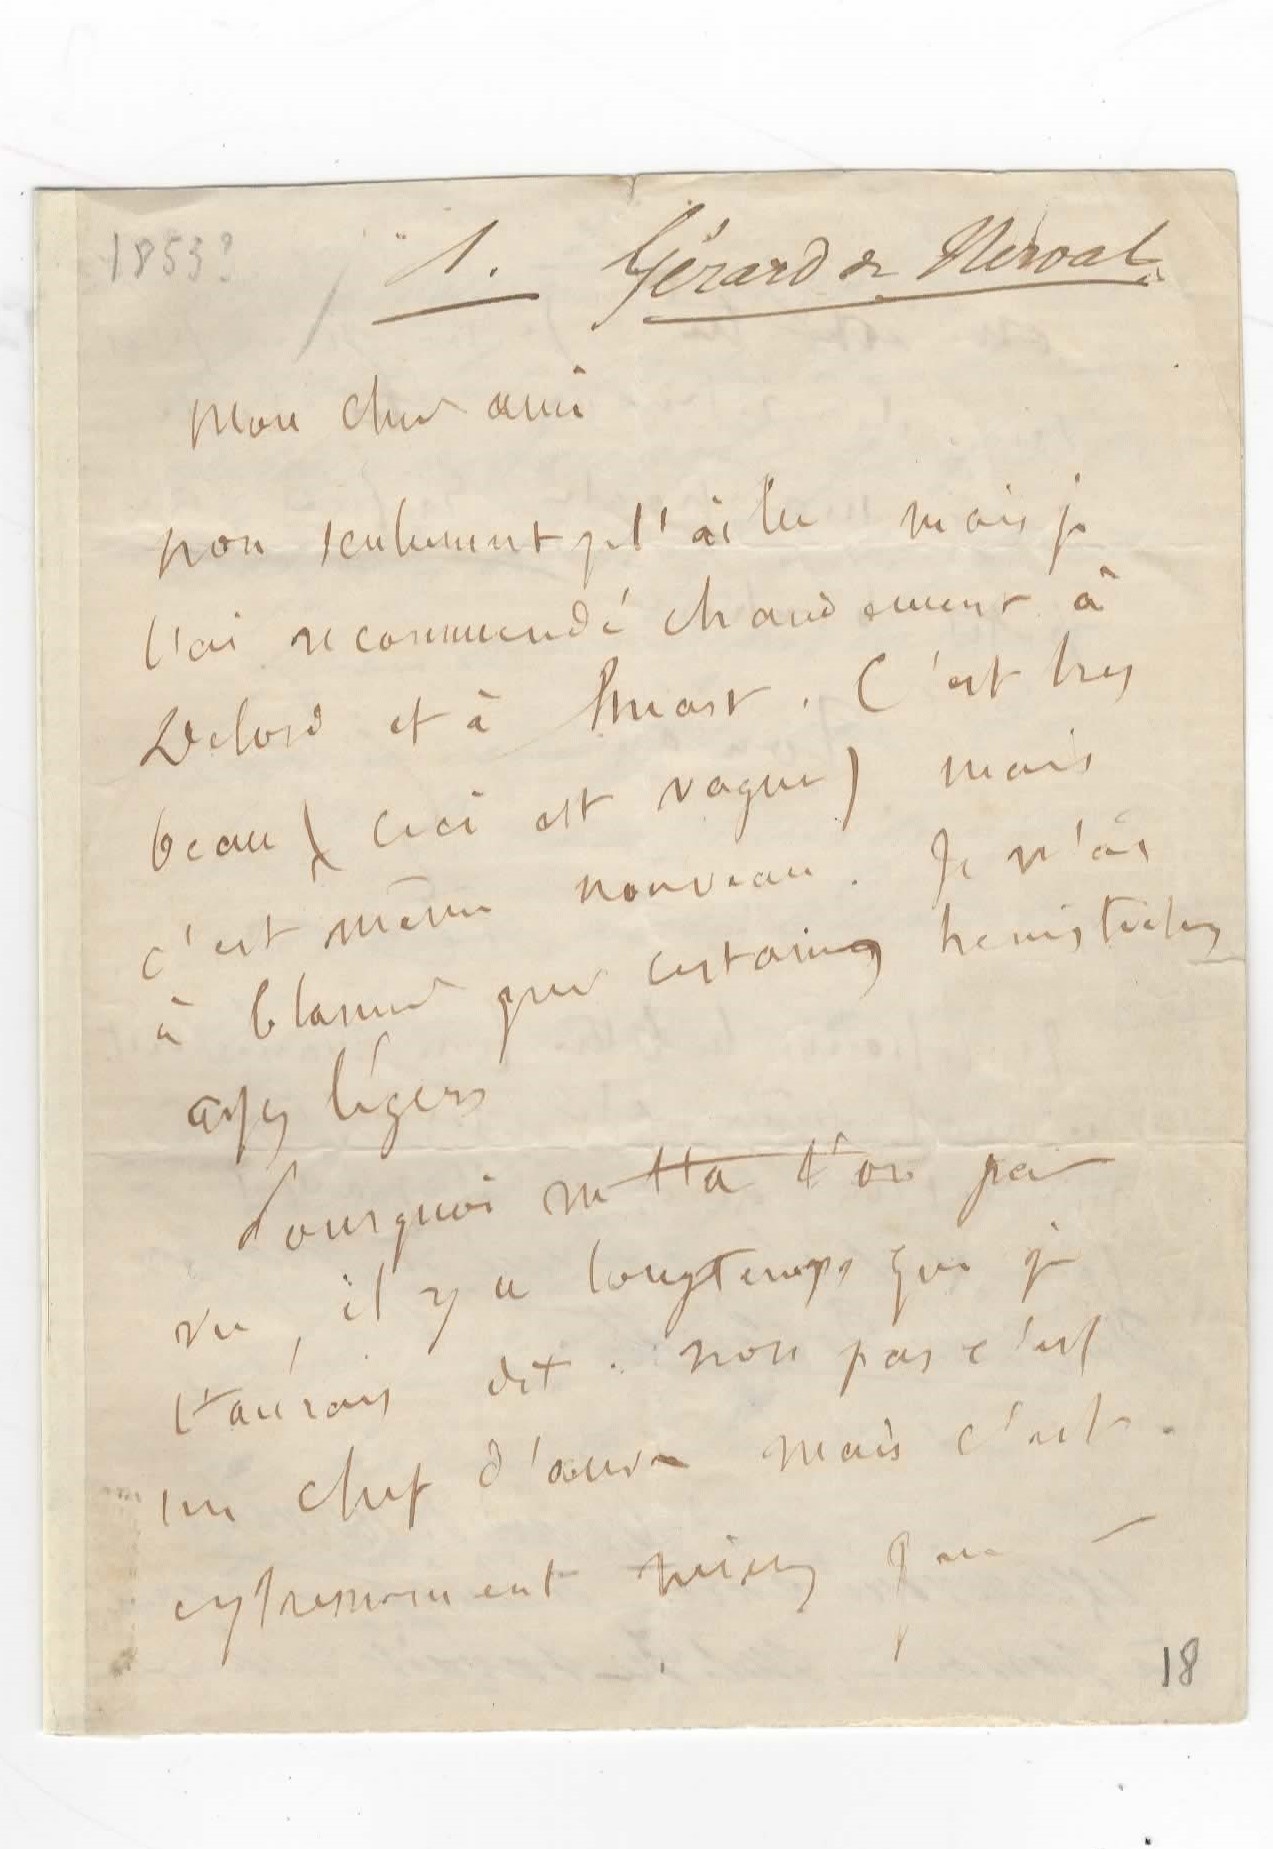 1853?
1. Gérard de Nerval
Mon cher ami
non seulement je l'ai lu mais je
l'ai recommandé chaudement à
Delord et à Huart. C'est tres
beau (ceci est vague) mais
c'est même nouveau. Je n'ai
à blamer que certains hemistiches
assez légers
Pourquoi ne t'a t'on pas
vu, il y a longtemps que je
t'aurais dit. non pas c'est
un chef d'œuvre mais c'est
extremement mieux que
18